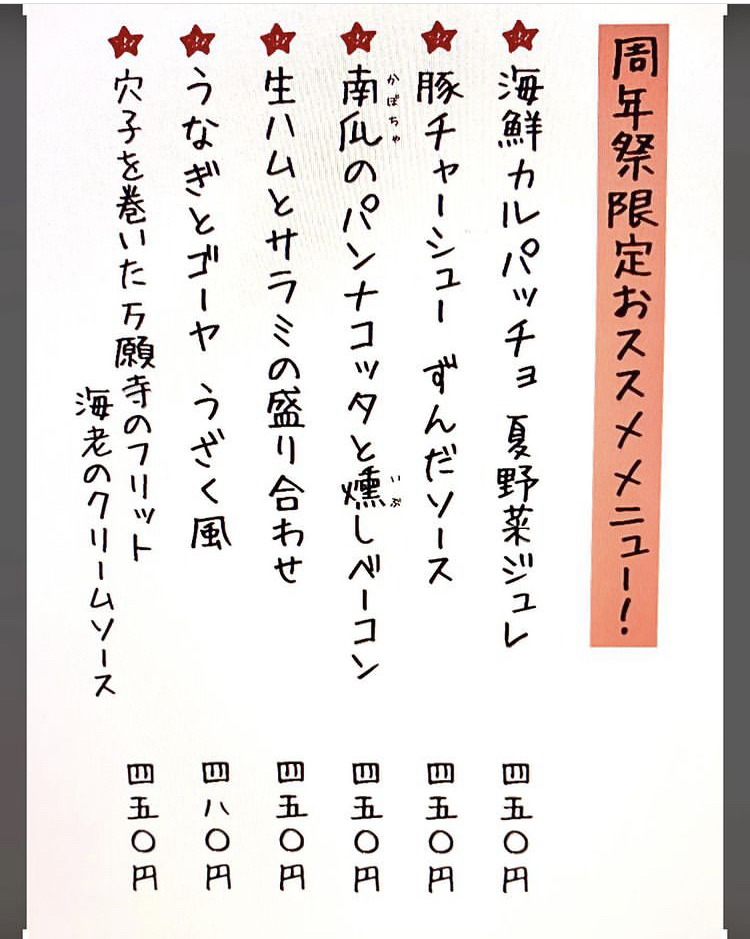 周年祭限定おススメメニュー！
海鮮カルパッチョ 夏野菜ジュレ
四五〇円
豚チャーシュー ずんだソース
四五〇円
南瓜のパンナコッタと燻しベーコン
かぼちゃ
いぶ
四五〇円
生ハムとサラミの盛り合わせ
四五〇円
うなぎとゴーヤ うざく風
四八〇円
穴子を巻いた万願寺のフリット
海老のクリームソース
四五〇円